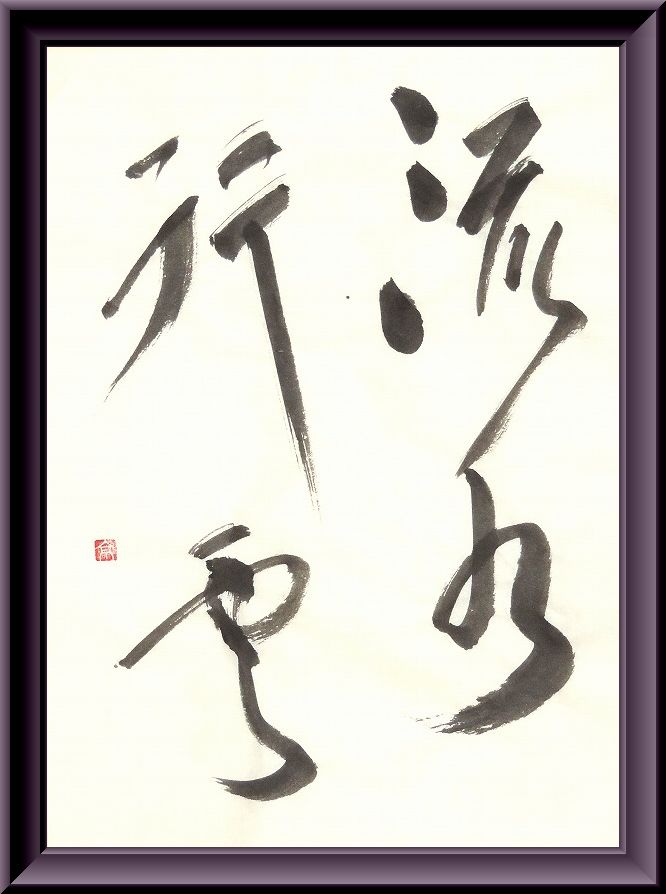 流水
行雲